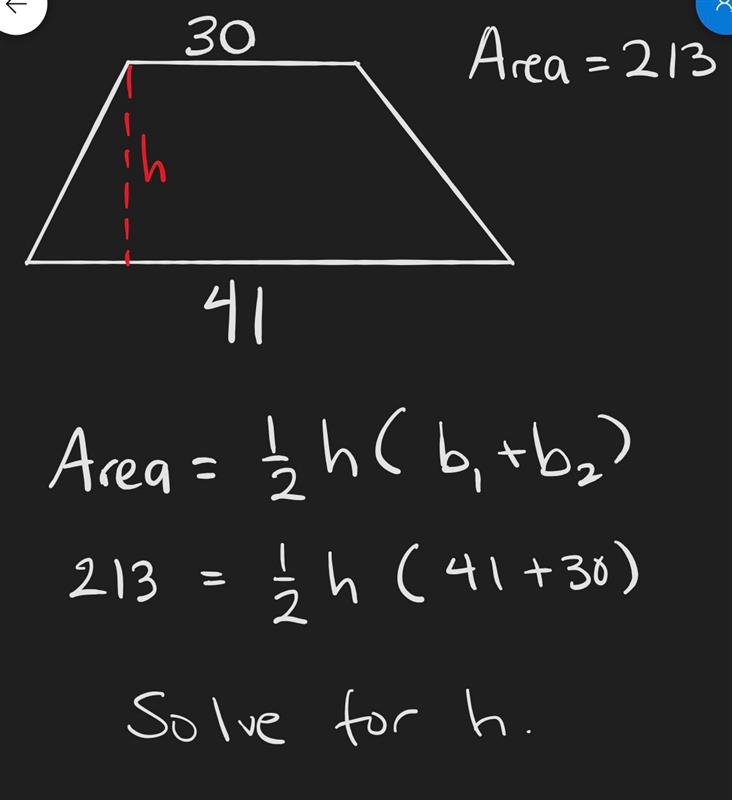 30
Area = 213
h
41
Area = ½ h ( b₁ + b₂ )
213 = ½ h ( 41 + 30 )
Solve for h.